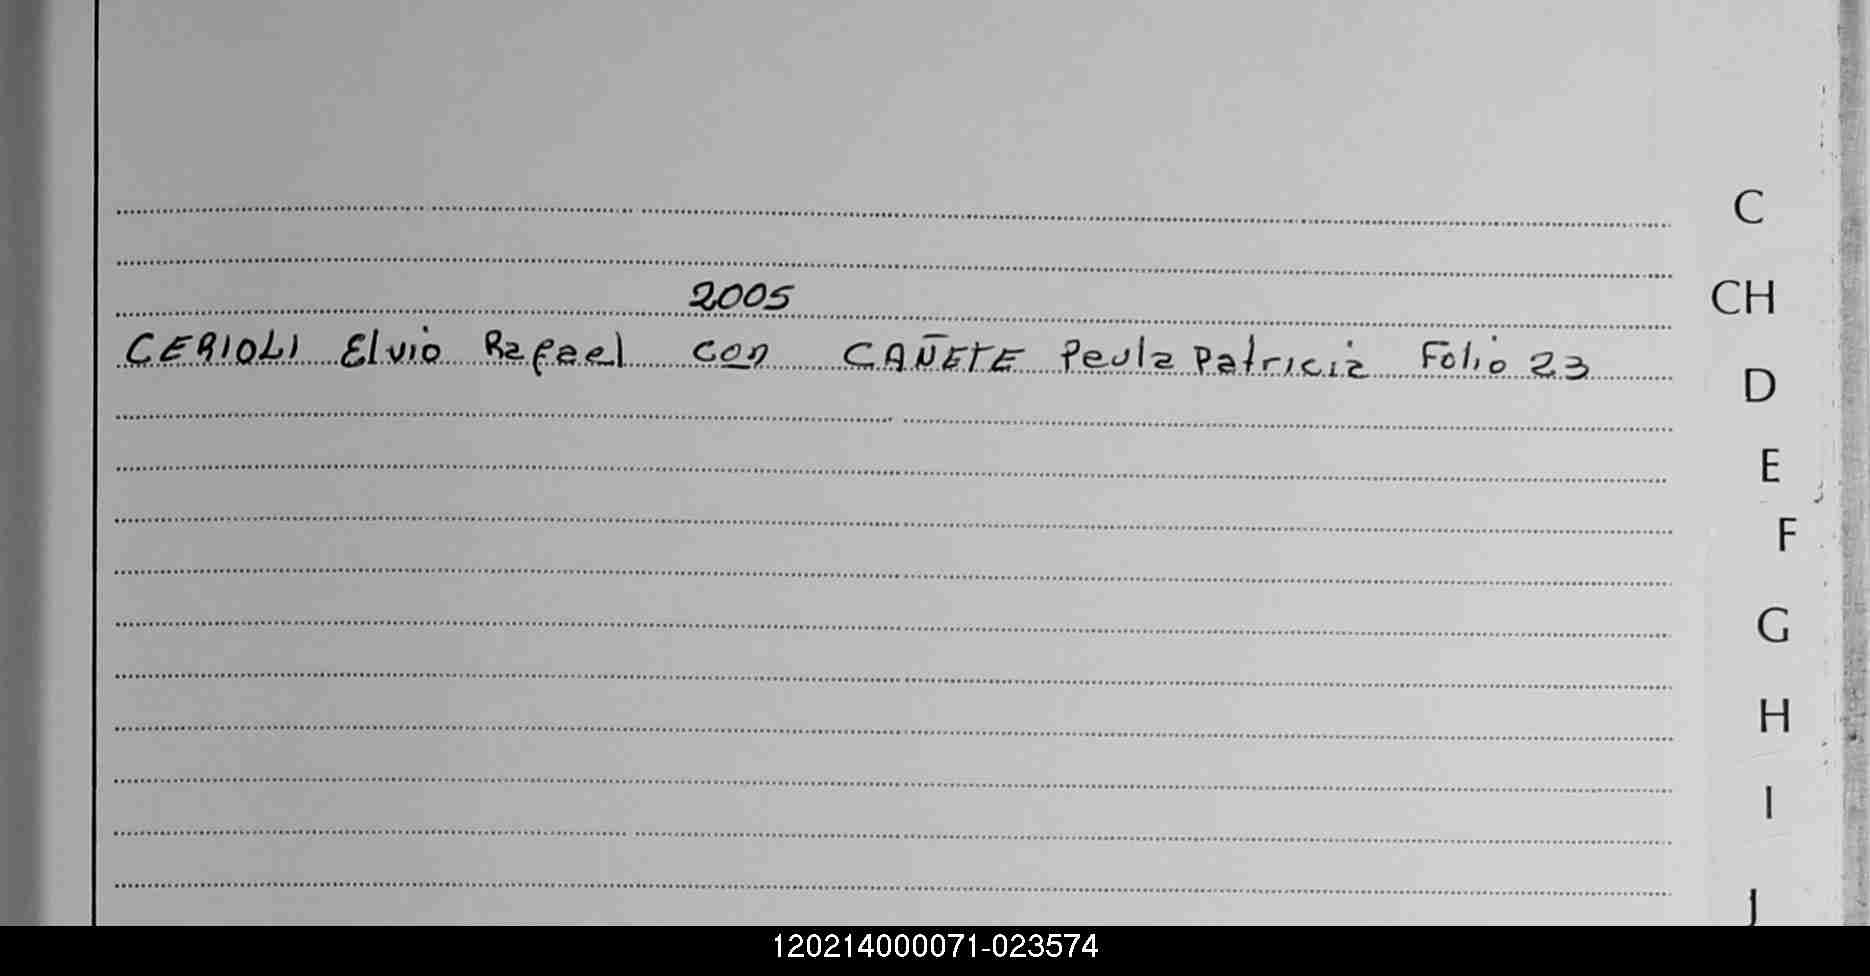 C
CH
2005
CERIOLI Elvio Rafael con CAÑETE Paula Patricia Folio 23
D
E
F
G
H
I
J
120214000071-023574